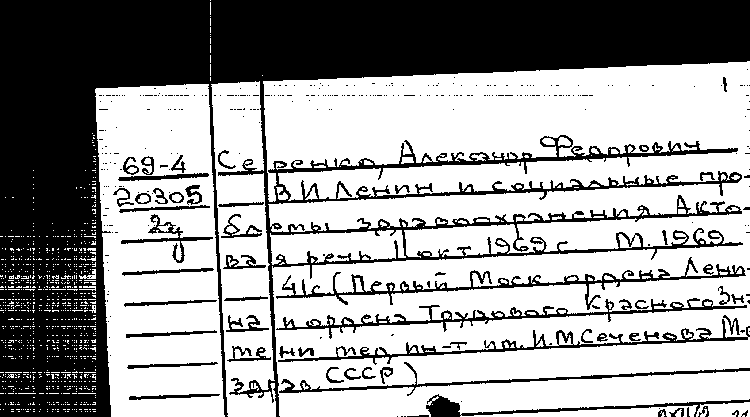 69-4 Серенко, Александр Федорович
20305 В.И. Ленин и социальные про-
2ц блемы здравоохранения. Акто-
вая речь 11 окт. 1969 г. М., 1969
41с (Первый Моск ордена Лени-
на и ордена Трудового Красного Зна
мени мед. ин-т им. И.М. Сеченова М-
здрав. СССР)